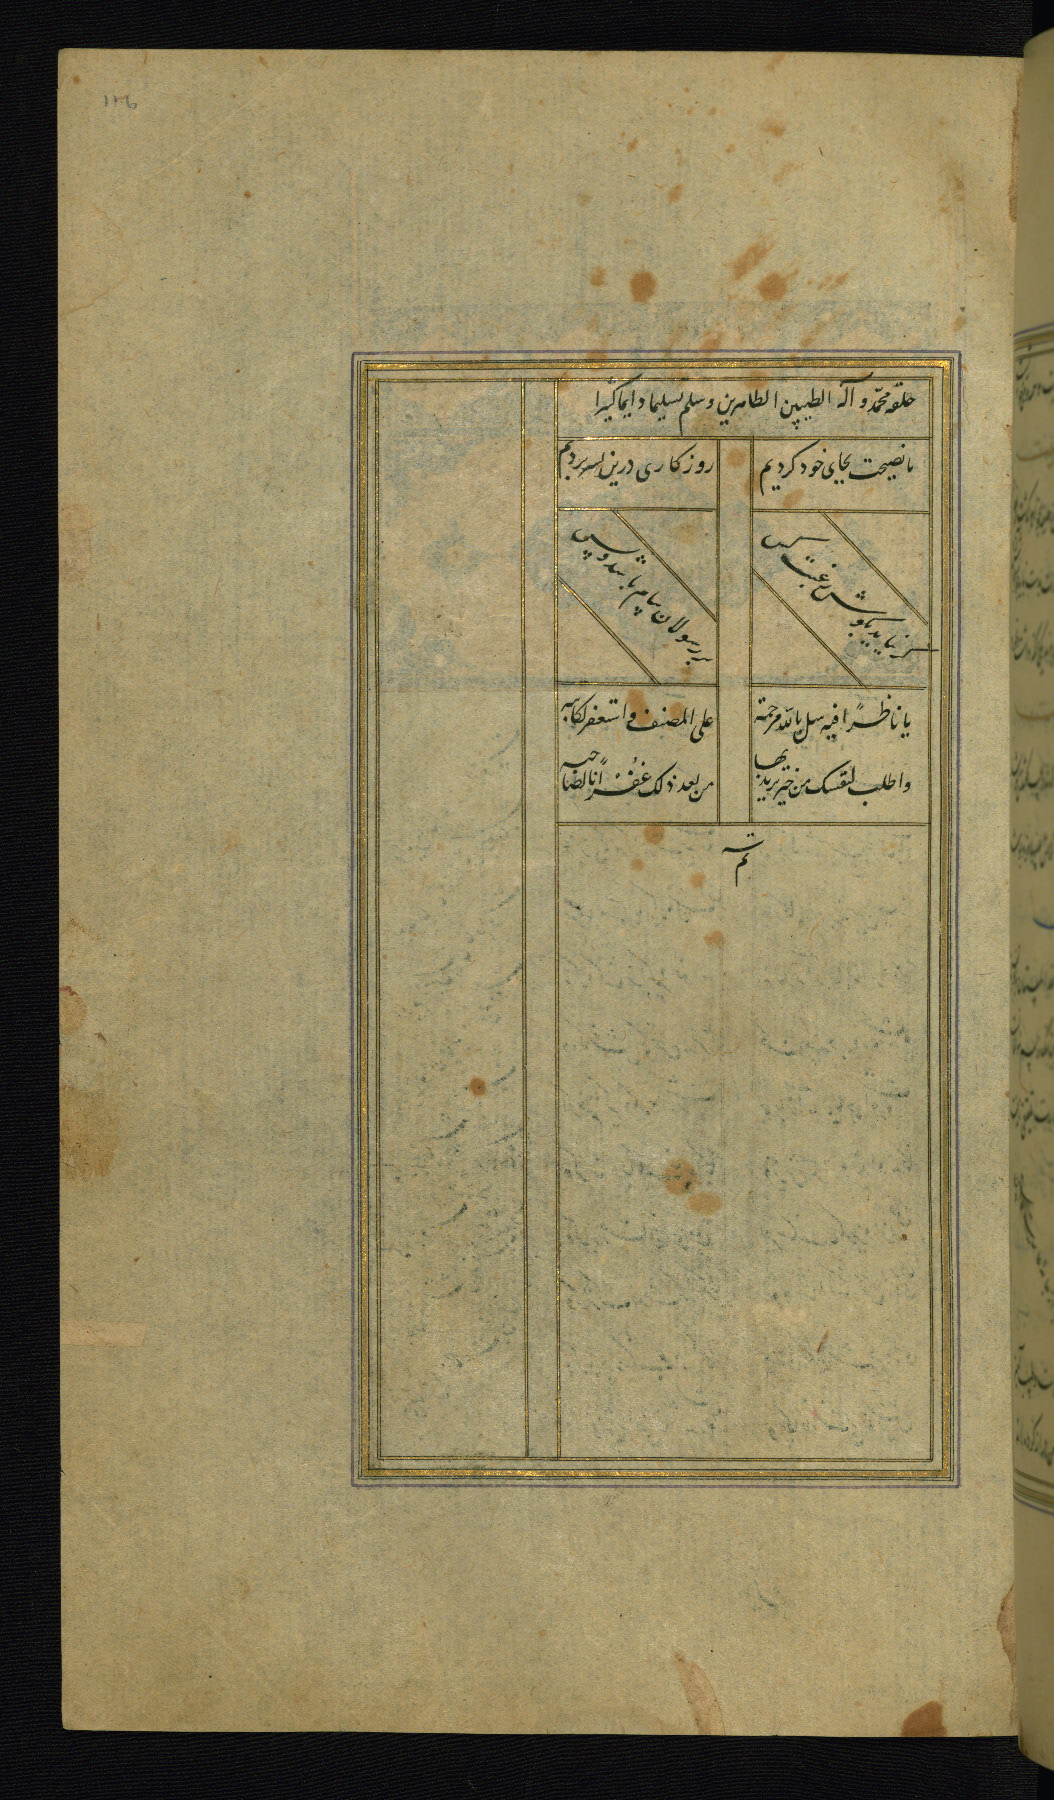 خلقه محمّد و آله الطیبین الطاهرین و سلم تسلیما دایما کثیرا
ما نصیحت بجای خود کردیم
روزکاری درین بسر بردیم
کر نیاید بکوش رغبت کس
بر رسولان پیام باشد و بس
یا ناظرًا فیه سل بالله مرحمة
علی المصنف و استغفر لکاتبه
واطلب لنفسک من خیر ترید بها
من بعد ذلک غفرانًا لصاحبه
تمت